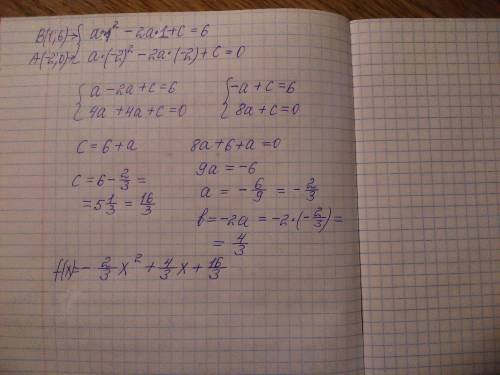 B(1;6)→ { a·1² − 2a·1 + c = 6
A(-2;0)→ a·(-2)² − 2a·(-2) + c = 0
{ a − 2a + c = 6
4a + 4a + c = 0
{ -a + c = 6
8a + c = 0
c = 6 + a
8a + 6 + a = 0
9a = -6
c = 6 − 2/3 =
= 5 1/3 = 16/3
a = − 6/9 = − 2/3
b = -2a = -2·(− 2/3) =
= 4/3
f(x) = − 2/3 x² + 4/3 x + 16/3